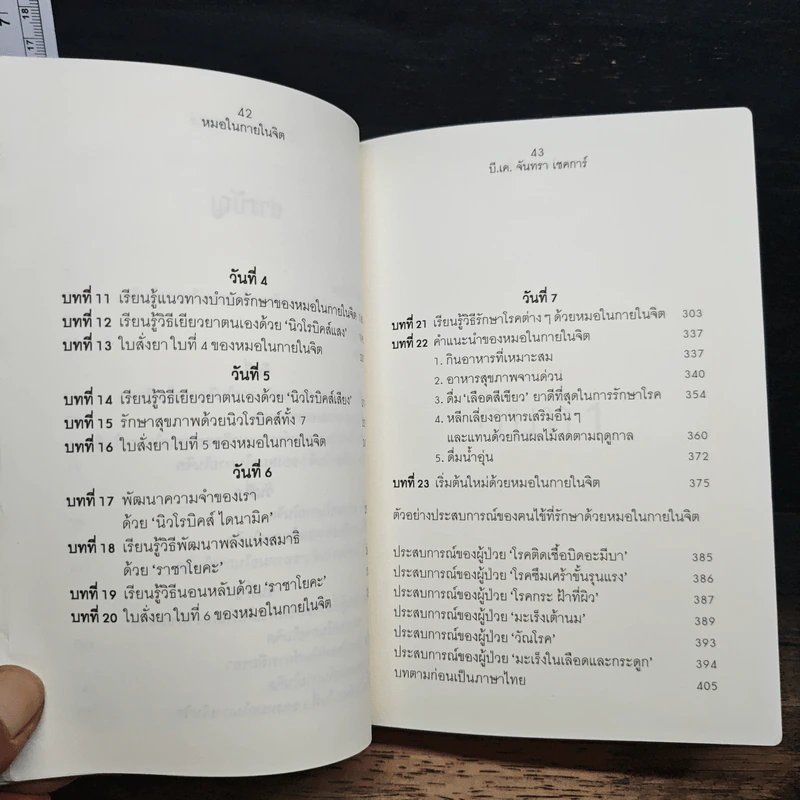 42
หมอในกายในจิต
วันที่ 4
บทที่ 11 เรียนรู้แนวทางบำบัดรักษาของหมอในกายในจิต
บทที่ 12 เรียนรู้วิธีเยียวยาตนเองด้วย ‘นิวโรบิคส์แสง’
บทที่ 13 ใบสั่งยา ใบที่ 4 ของหมอในกายในจิต
วันที่ 5
บทที่ 14 เรียนรู้วิธีเยียวยาตนเองด้วย ‘นิวโรบิคส์เสียง’
บทที่ 15 รักษาสุขภาพด้วยนิวโรบิคส์ทั้ง 7
บทที่ 16 ใบสั่งยา ใบที่ 5 ของหมอในกายในจิต
วันที่ 6
บทที่ 17 พัฒนาความจำของเรา
ด้วย ‘นิวโรบิคส์ ไดนามิค’
บทที่ 18 เรียนรู้วิธีพัฒนาพลังแห่งสมาธิ
ด้วย ‘ราชาโยคะ’
บทที่ 19 เรียนรู้วิธีนอนหลับด้วย ‘ราชาโยคะ’
บทที่ 20 ใบสั่งยา ใบที่ 6 ของหมอในกายในจิต
43
บี.เค. จันทรา เชคการ์
วันที่ 7
บทที่ 21 เรียนรู้วิธีรักษาโรคต่าง ๆ ด้วยหมอในกายในจิต 303
บทที่ 22 คำแนะนำของหมอในกายในจิต 337
1. กินอาหารที่เหมาะสม 337
2. อาหารสุขภาพจานด่วน 340
3. ดื่ม ‘เลือดสีเขียว’ ยาดีที่สุดในการรักษาโรค 354
4. หลีกเลี่ยงอาหารเสริมอื่น ๆ
และแทนด้วยกินผลไม้สดตามฤดูกาล 360
5. ดื่มน้ำอุ่น 372
บทที่ 23 เริ่มต้นใหม่ด้วยหมอในกายในจิต 375
ตัวอย่างประสบการณ์ของคนไข้ที่รักษาด้วยหมอในกายในจิต
ประสบการณ์ของผู้ป่วย ‘โรคติดเชื้อบิดอะมีบา’ 385
ประสบการณ์ของผู้ป่วย ‘โรคซึมเศร้าขั้นรุนแรง’ 386
ประสบการณ์ของผู้ป่วย ‘โรคกระ ฝ้าที่ผิว’ 387
ประสบการณ์ของผู้ป่วย ‘มะเร็งเต้านม’ 389
ประสบการณ์ของผู้ป่วย ‘วัณโรค’ 393
ประสบการณ์ของผู้ป่วย ‘มะเร็งในเลือดและกระดูก’ 394
บทตามก่อนเป็นภาษาไทย 405
17
18
7